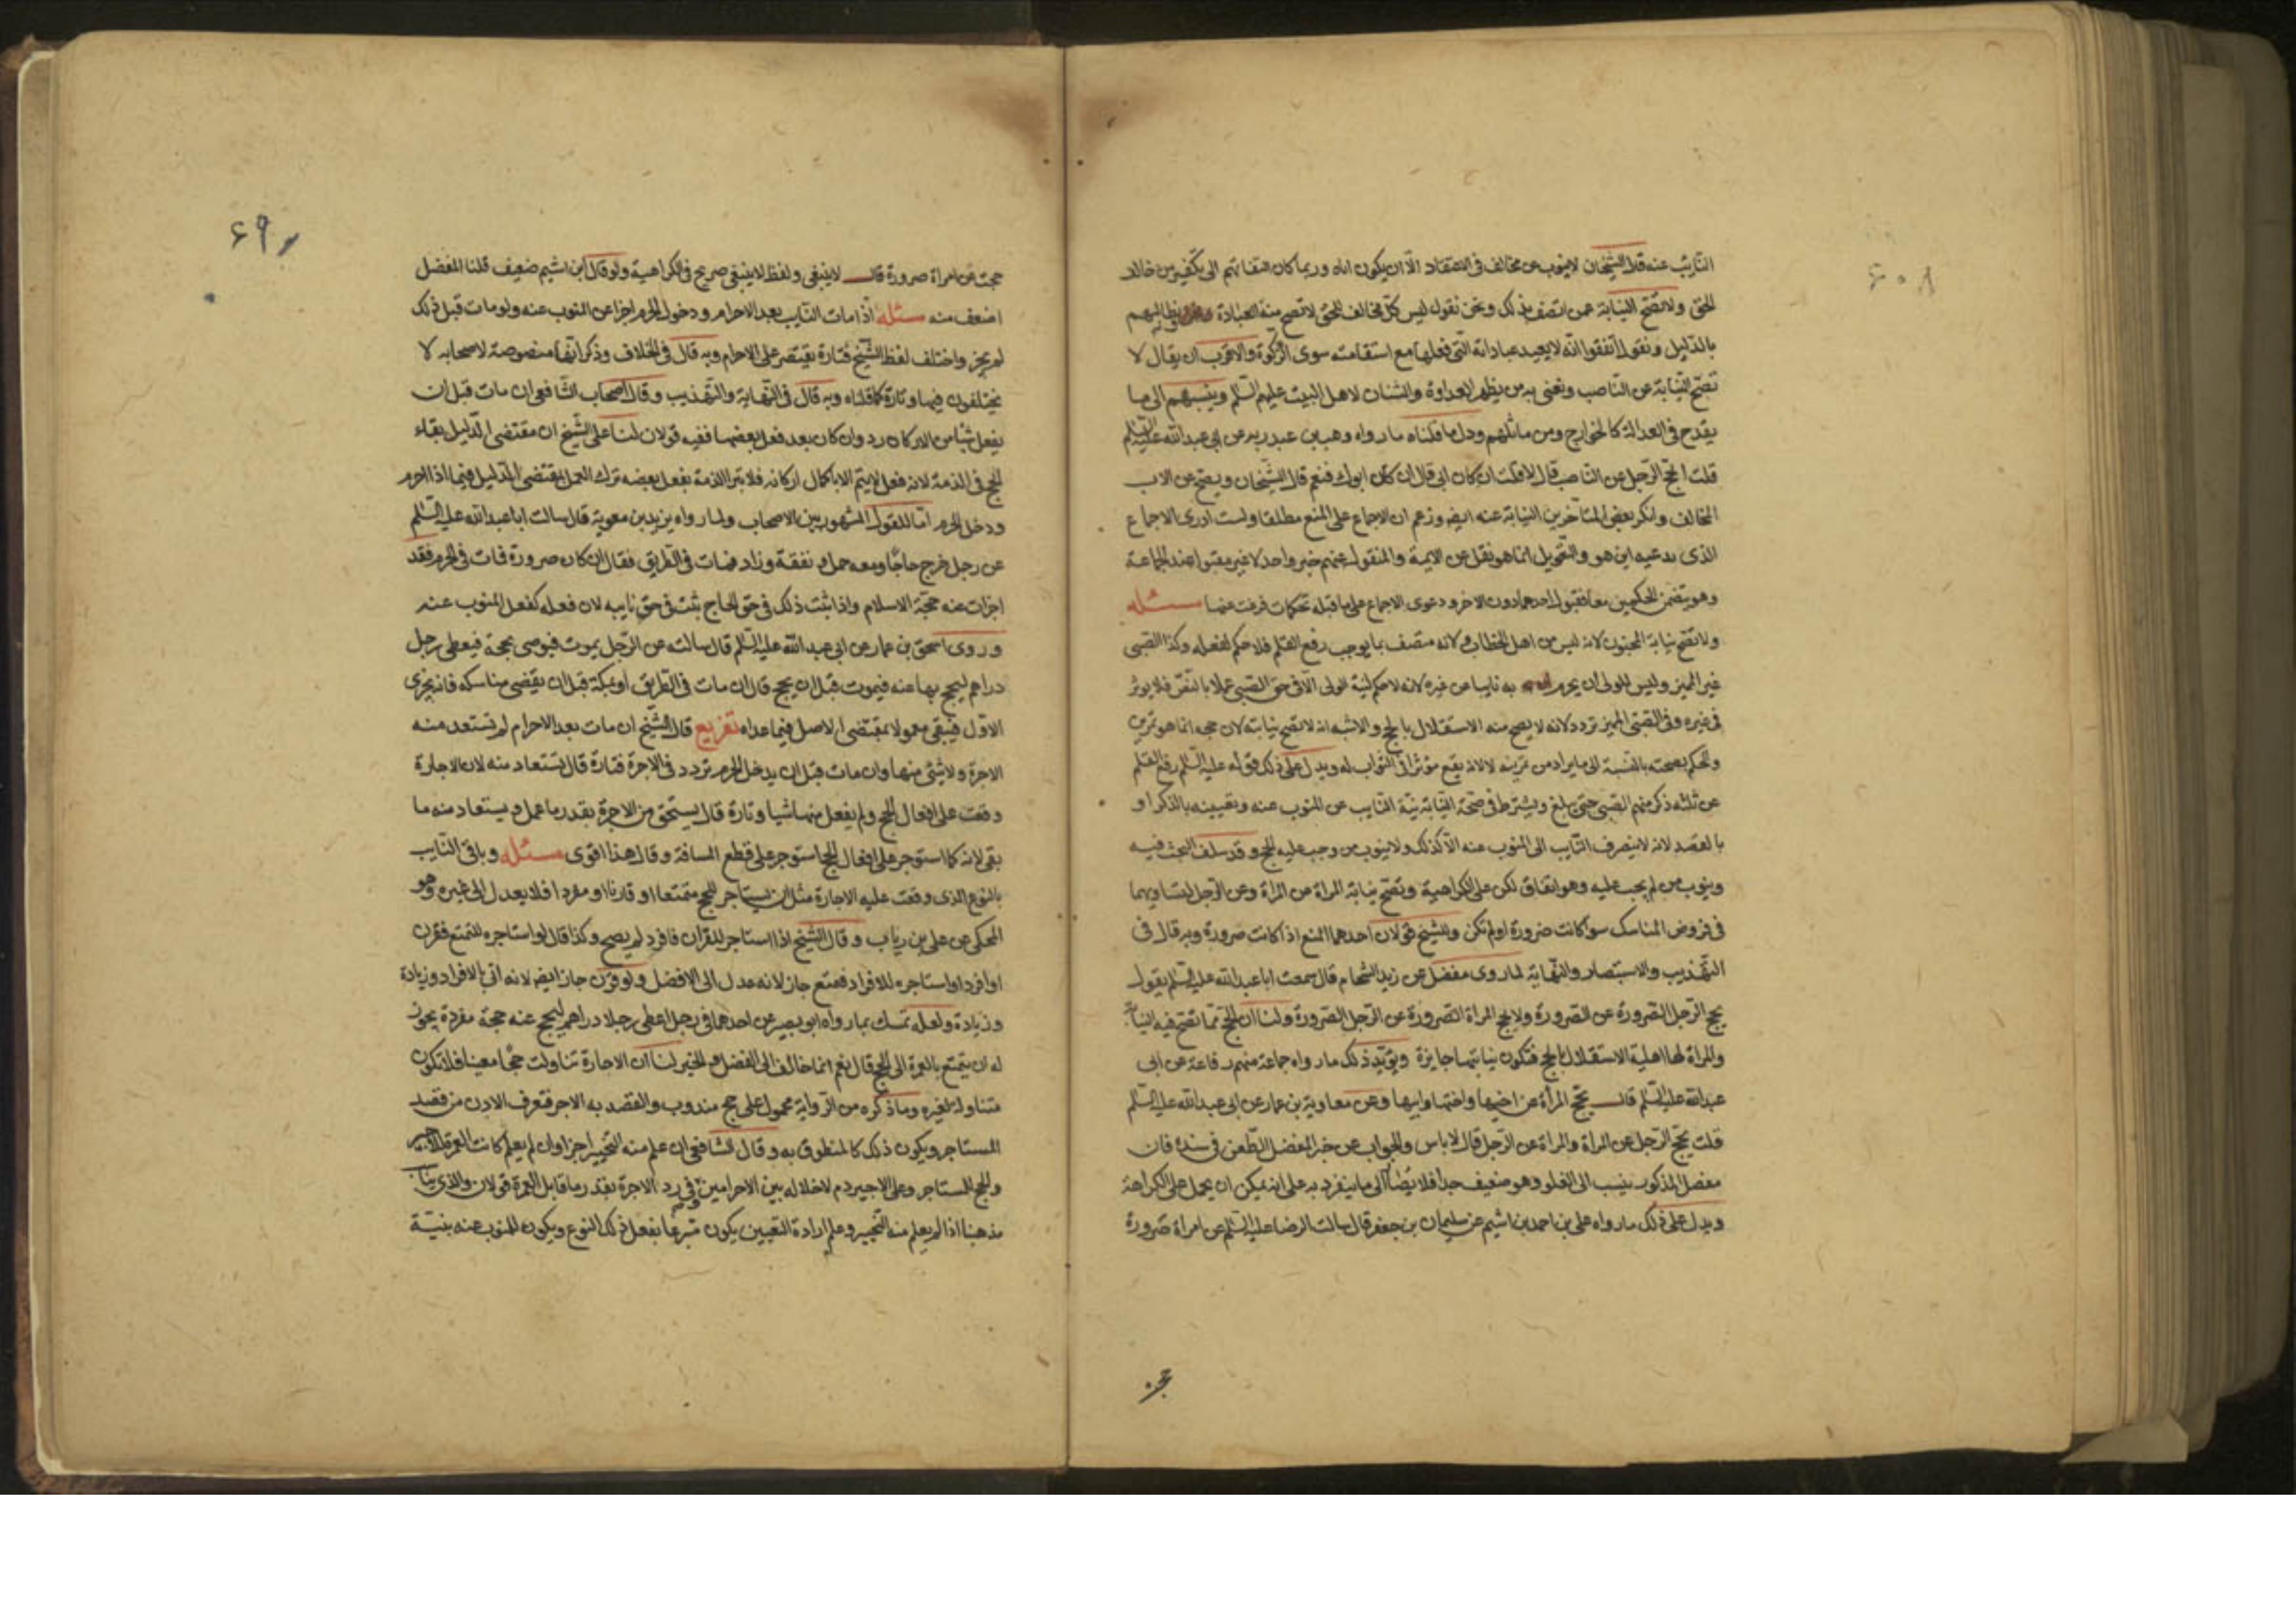 النايب عنه قال الشيخان لاينوب عن مخالف فى الاعتقاد الا ان يكون اباه وربما كان التفاتهم الى تكفير من خالف
الحق ولا تصح النيابة عمن اتصف بذلك ونحن نقول ليس كل مخالف للحق لا تصح منه العبادة ونطالبهم
بالدليل ونقول اتفقوا انه لايعيد عباداته التى فعلها مع استقامته سوى الزكوة والاقرب ان يقال لا
تصح النيابة عن الناصب ونعنى به من يظهر العداوة والشنان لاهل البيت عليهم السلم وينسبهم الى ما
يقدح فى العدالة كالخوارج ومن ماثلهم ودل ما قلناه ما رواه وهب بن عبد ربه عن ابى عبد الله عليه السلم
قلت ايحج الرجل عن الناصب قال لا قلت ان كان ابى قال ان كان ابوك فنعم قال الشيخان ويصح عن الاب
المخالف وانكر بعض المتاخرين النيابة عنه ايضا وزعم ان الاجماع على المنع مطلقا ولست ادرى الاجماع
الذى يدعيه اين هو والتعويل انما هو نقل عن الايمة والمنقول عنهم خبر واحد لا غير مقبول عند الجماعة
وهو يتضمن الحكمين معا فقبول احدهما دون الاخر ودعوى الاجماع على ما قبله تحكمات فرغت عنها مسئله
ولا تصح نيابة المجنون لانه ليس من اهل الخطاب ولانه متصف بما يوجب رفع القلم فلا حكم لفعله وكذا الصبى
غير المميز وليس للولى ان يحرم به نايبا عن غيره لانه لا حكم لنية الولى الا فى حق الصبى عملا بالنص فلا يوثر
فى غيره وفى الصبى المميز تردد لانه لا يصح منه الاستقلال بالحج والاشبه انه لا تصح نيابته لان حجه انما هو تمرين
والحكم بصحته بالنسبة الى ما يراد من تمرينه لا لانه يقع مؤثرا فى الثواب له ويدل على ذلك قوله عليه السلم رفع القلم
عن ثلثه ذكر منهم الصبى حتى يبلغ ويشترط فى صحة النيابة نية النايب عن المنوب عنه وتعيينه بالذكر او
بالقصد لانه لا ينصرف النايب الى المنوب عنه الا كذلك ولا ينوب من وجب عليه الحج وقد سلف البحث فيه
وينوب من لم يجب عليه وهو اتفاق لكن على الكراهية وتصح نيابة المراة عن المراة وعن الرجل لتساويهما
فى فروض المناسك سواء كانت ضرورة او لم تكن وللشيخ قولان احدهما المنع اذا كانت صرورة وبه قال فى
التهذيب والاستبصار والنهاية لما روى مفضل عن زيد الشحام قال سمعت ابا عبد الله عليه السلم يقول
يحج الرجل الصرورة عن الصرورة ولا يحج المراة الصرورة عن الرجل الصرورة ولنا ان الحج مما تصح فيه النيابة
وللمراة لها اهلية الاستقلال بالحج فتكون نيابتها جايزة ويؤيد ذلك ما رواه جماعة منهم رفاعة عن ابى
عبد الله عليه السلم قال تحج المرأة عن اختها واخيها وابيها وعن معاوية بن عمار عن ابى عبد الله عليه السلم
قلت يحج الرجل عن المراة والمراة عن الرجل قال لا باس والجواب عن خبر المفضل الطعن فى سنده فان
مفضل المذكور ينسب الى الغلو وهو ضعيف جدا فلا يصار الى ما ينفرد به على انه يمكن ان يحمل على الكراهة
ويدل على ذلك ما رواه على بن احمد بن اشيم عن سليمان بن جعفر قال سالت الرضا عليه السلم عن امراة صرورة
حجت عن امراة صرورة قال لاينبغى ولفظ لاينبغى صريح فى الكراهية ولو قال ابن اشيم ضعيف قلنا المفضل
اضعف منه مسئله اذا مات النايب بعد الاحرام ودخول الحرم اجزا عن المنوب عنه ولو مات قبل ذلك
لم يجز واختلف لفظ الشيخ فتارة يقتصر على الاحرام وبه قال فى الخلاف وذكر انها منصوصة لاصحابه لا
يختلفون فيها وتارة كما قلناه وبه قال فى النهاية والتهذيب وقال اصحاب الشافعى ان مات قبل ان
يفعل شيا من الاركان رد وان كان بعد فعل بعضها ففيه قولان لنا على الشيخ ان مقتضى الدليل بقاء
الحج فى الذمة لانه فعل لا يتم الا باكمال اركانه فلا تبرا الذمة بفعل بعضه ترك العمل بمقتضى الدليل فيما اذا احرم
ودخل الحرم اما للقول المشهور بين الاصحاب ولما رواه بريد بن معوية قال سالت ابا عبد الله عليه السلم
عن رجل خرج حاجا ومعه جمل ونفقة وزاد فمات فى الطريق فقال ان كان صرورة فمات فى الحرم فقد
اجزات عنه حجة الاسلام واذا ثبت ذلك فى حق الحاج ثبت فى حق نايبه لان فعله كفعل المنوب عنه
وروى اسحق بن عمار عن ابى عبد الله عليه السلم قال سالته عن الرجل يموت فيوصى بحجة فيعطى رجل
دراهم ليحج بها عنه فيموت قبل ان يحج قال ان مات فى الطريق او بمكة قبل ان يقضى مناسكه فانه يجزى
الاول فيبقى معمولا بمقتضى الاصل فيما عداه تفريع قال الشيخ ان مات بعد الاحرام لم تستعد منه
الاجرة ولا شئ منها وان مات قبل ان يدخل الحرم تردد فى الاجرة فتارة قال يستعاد منه لان الاجارة
وقعت على افعال الحج ولم يفعل منها شيا وتارة قال يستحق من الاجرة بقدر ما عمل ويستعاد منه ما
بقى لانه كما استوجر على افعال الحج استوجر على قطع المسافة وقال هذا اقوى مسئله وياتى النايب
بالنوع الذى وقعت عليه الاجارة مثل ان يستاجر للحج متمتعا او قارنا او مفردا فلا يعدل الى غيره وهو
المحكى عن على بن رياب وقال الشيخ اذا استاجر للقران فافرد لم يصح وكذا قال لو استاجره للتمتع فقرن
او افرد او استاجره للافراد فتمتع جاز لانه عدل الى الافضل ولو قرن جاز ايضا لانه اتى بالافراد وزيادة
وزيادة ولعله تمسك بما رواه ابو بصير عن احدهما فى رجل اعطى رجلا دراهم ليحج عنه حجة مفردة يجوز
له ان يتمتع بالعمرة الى الحج قال نعم انما خالف الى الفضل والخير لنا ان الاجارة تناولت حجا معينا فلا تكون
متناولة لغيره وما ذكره من الرواية محمول على حج مندوب والقصد به الاجر فتعرف الاذن من قصد
المستاجر ويكون ذلك كالمنطوق به وقال الشافعى ان علم منه التخيير اجزا وان لم يعلم كانت العمرة للاجير
والحج للمستاجر وعلى الاجير دم لاخلاله بين الاحرامين وفى رد الاجرة بقدر ما قابل العمرة قولان والذى
مذهبنا اذا لم يعلم منه التخيير وعلم ارادة التعيين يكون متبرعا بفعل ذلك النوع ويكون للمنوب عنه بنية